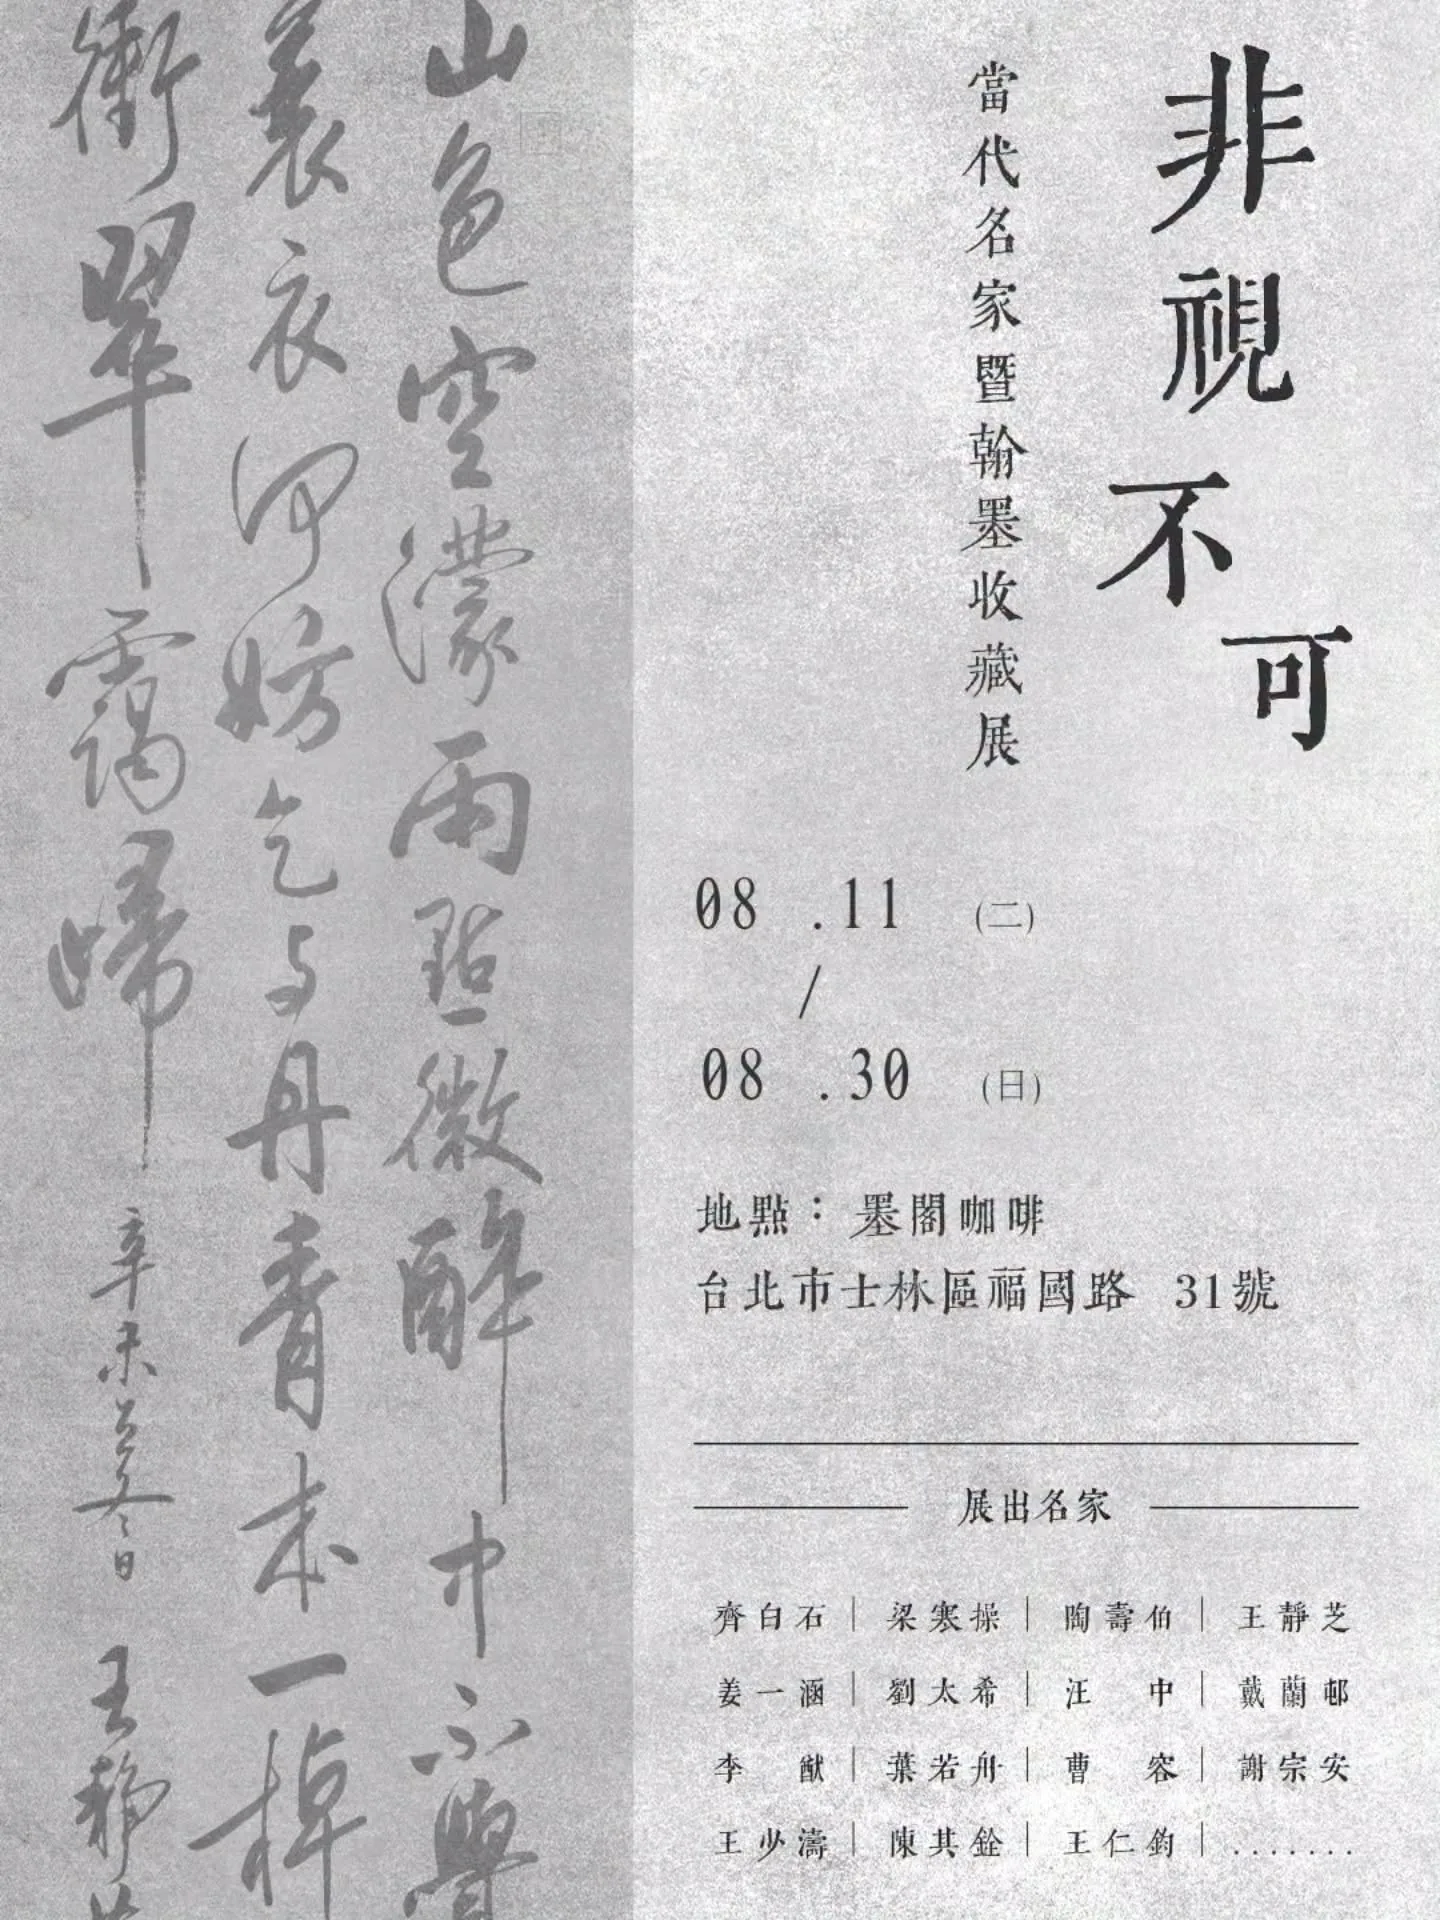 非視不可
當代名家暨翰墨收藏展
08 .11 (二)
/
08 .30 (日)
地點：墨閣咖啡
台北市士林區福國路 31號
展出名家
齊白石｜梁寒操｜陶壽伯｜王靜芝
姜一涵｜劉太希｜汪 中｜戴蘭邨
李 猷｜葉若舟｜曹 容｜謝宗安
王少濤｜陳其銓｜王仁鈞｜.......
山色空濛雨點微醉中不覺
蓑衣何妨乞與丹青本一棹
衝翠靄歸
辛未冬日
王靜芝